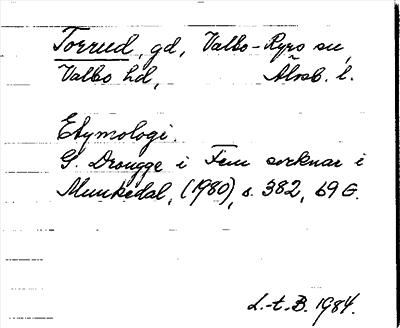 Torrud, gd, Valbo-Ryrs sn,
Valbo hd, Älvsb. l.
Etymologi.
G. Drougge i Fem socknar i
Munkedal, (1980), s. 382, 69 G.
L.-t. B. 1984.